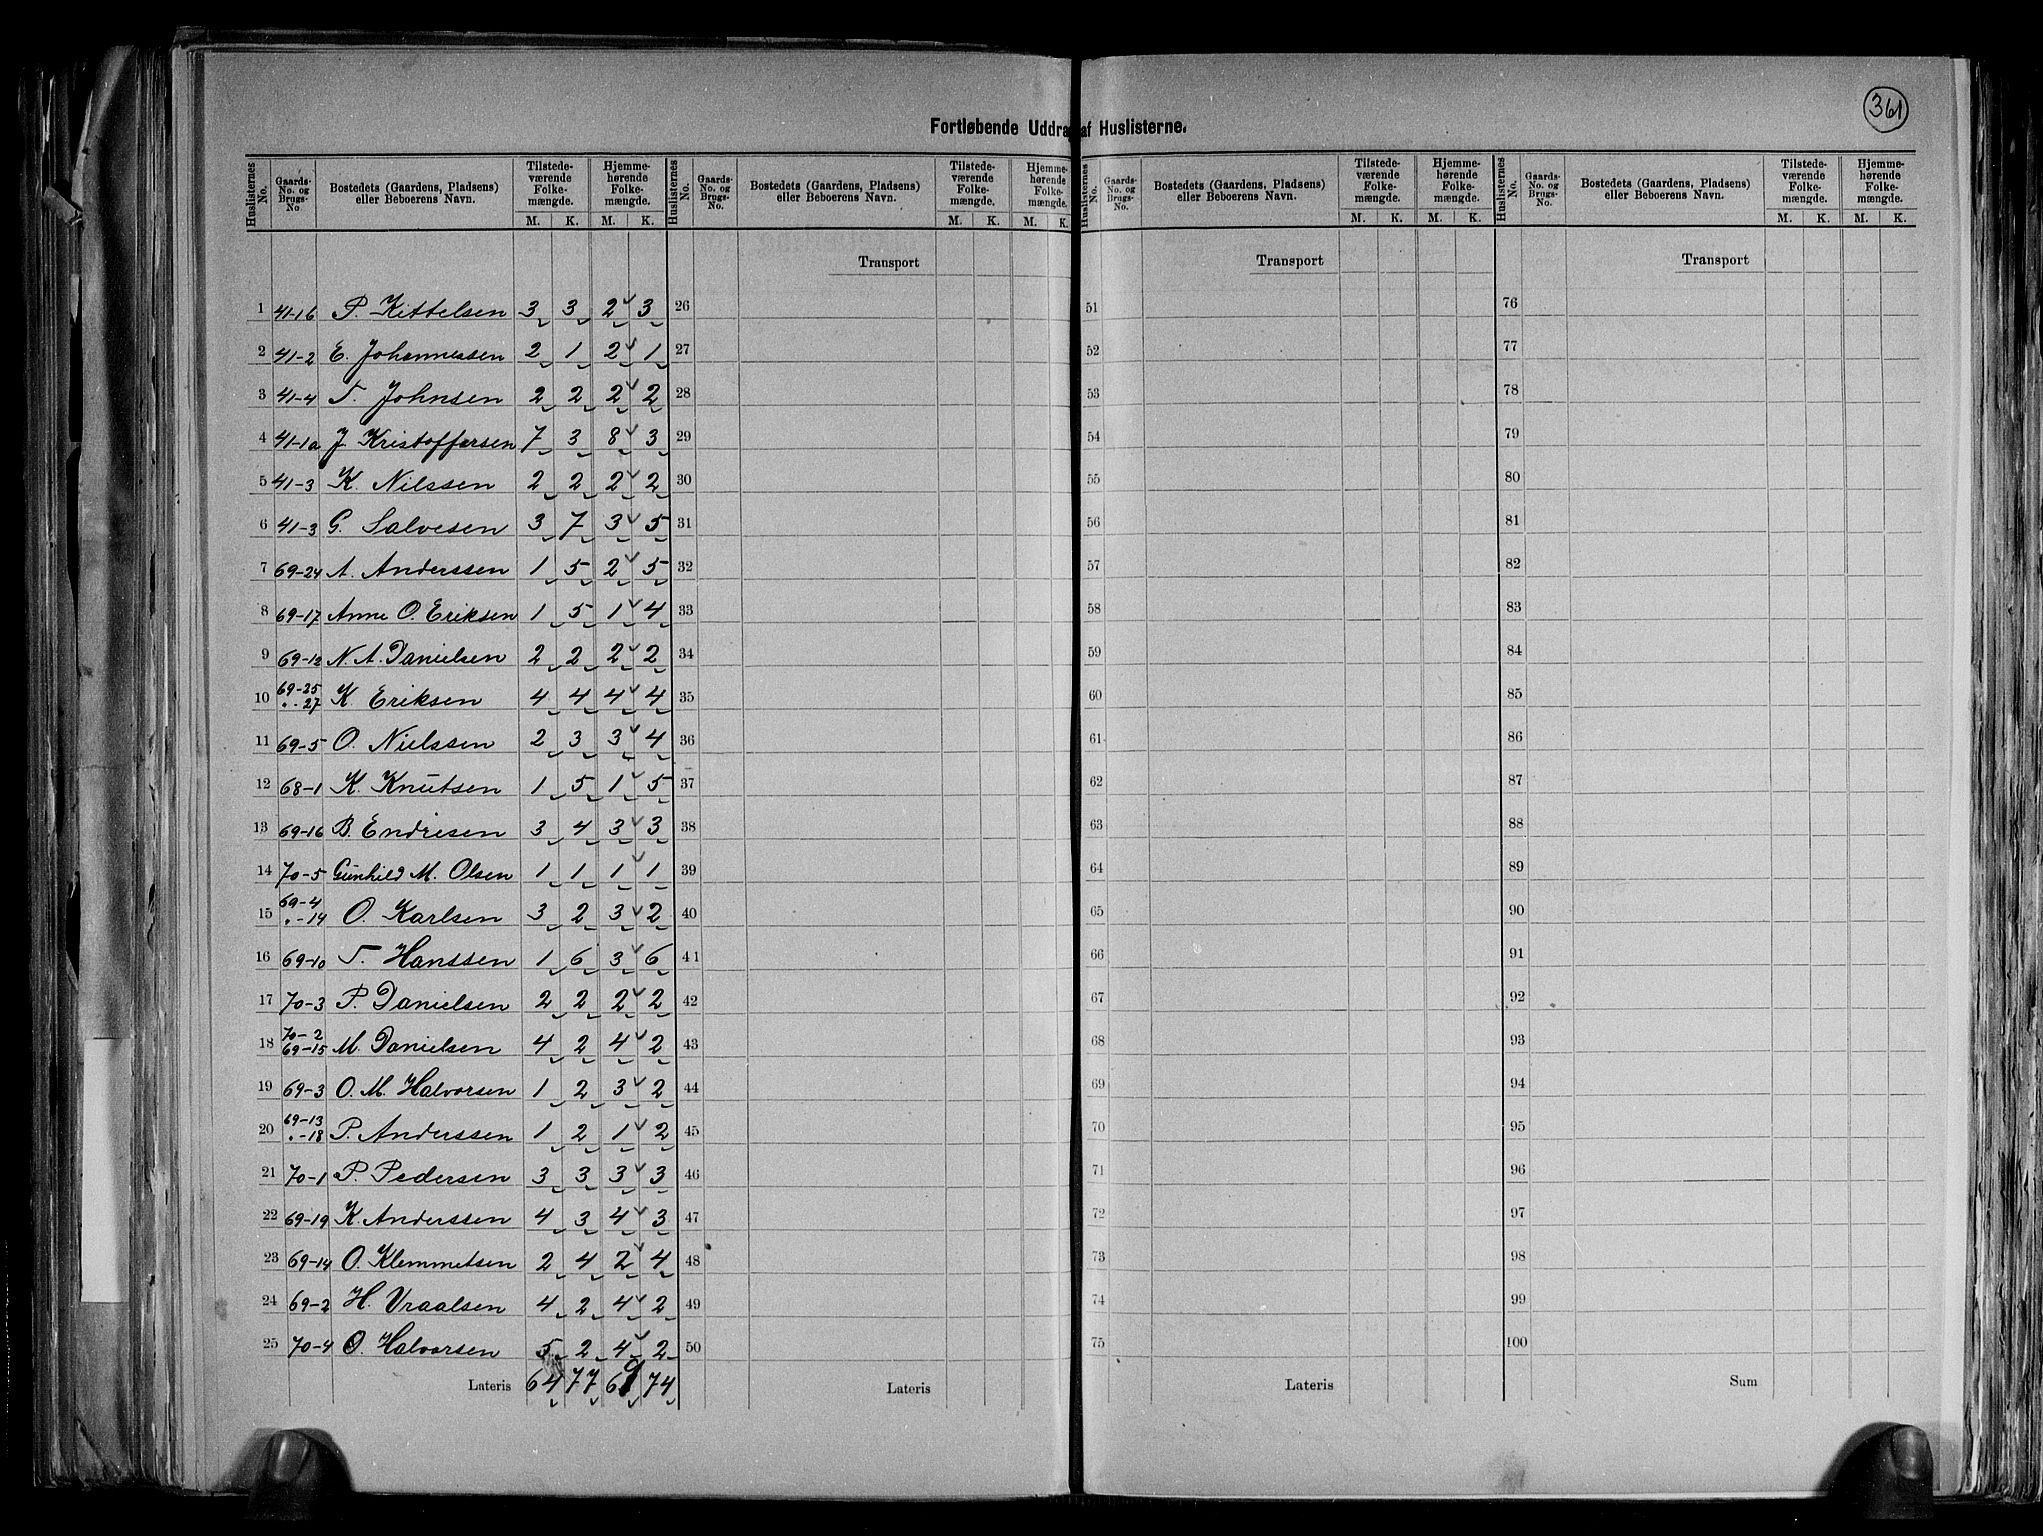 361
Fortløbende Uddrag af Huslisterne.
Huslisternes No. Gaards-No. og Brugs-No. Bostedets (Gaardens, Pladsens) eller Beboerens Navn. Tilstedeværende Folkemængde. M. K. Hjemmehørende Folkemængde. M. K.
Huslisternes No. Gaards-No. og Brugs-No. Bostedets (Gaardens, Pladsens) eller Beboerens Navn. Tilstedeværende Folkemængde. M. K. Hjemmehørende Folkemængde. M. K.
Huslisternes No. Gaards-No. og Brugs-No. Bostedets (Gaardens, Pladsens) eller Beboerens Navn. Tilstedeværende Folkemængde. M. K. Hjemmehørende Folkemængde. M. K.
Huslisternes No. Gaards-No. og Brugs-No. Bostedets (Gaardens, Pladsens) eller Beboerens Navn. Tilstedeværende Folkemængde. M. K. Hjemmehørende Folkemængde. M. K.
Transport Transport Transport
1 41-16 P. Kittelsen 3 3 2 3 26 51 76
2 41-2 E. Johannessen 2 1 2 1 27 52 77
3 41-4 T. Johnsen 2 2 2 2 28 53 78
4 41-1a J. Kristoffersen 7 3 8 3 29 54 79
5 41-3 K. Nilssen 2 2 2 2 30 55 80
6 41-3 G. Salvesen 3 7 3 5 31 56 81
7 69-24 A. Anderssen 1 5 2 5 32 57 82
8 69-17 Anne O. Eriksen 1 5 1 4 33 58 83
9 69-12 N. A. Danielsen 2 2 2 2 34 59 84
10 69-25 "-27 K. Eriksen 4 4 4 4 35 60 85
11 69-5 O. Nielssen 2 3 3 4 36 61 86
12 68-1 K. Knutsen 1 5 1 5 37 62 87
13 69-16 B. Endresen 3 4 3 3 38 63 88
14 70-5 Gunhild M. Olsen 1 1 1 1 39 64 89
15 69-4 "-14 O. Karlsen 3 2 3 2 40 65 90
16 69-10 T. Hanssen 1 6 3 6 41 66 91
17 70-3 P. Danielsen 2 2 2 2 42 67 92
18 70-2 69-15 M. Danielsen 4 2 4 2 43 68 93
19 69-3 O. M. Halvorsen 1 2 3 2 44 69 94
20 69-13 "-18 P. Anderssen 1 2 1 2 45 70 95
21 70-1 P. Pedersen 3 3 3 3 46 71 96
22 69-19 K. Anderssen 4 3 4 3 47 72 97
23 69-14 O. Klemmetsen 2 4 2 4 48 73 98
24 69-2 H. Vraalsen 4 2 4 2 49 74 99
25 70-4 O. Halvorsen 5 2 4 2 50 75 100
Lateris 64 77 69 74 Lateris Lateris Sum